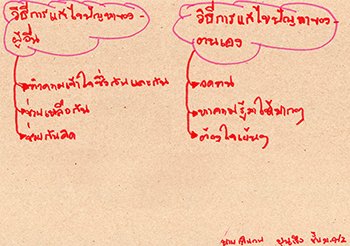 วิธีการแก้ไขปัญหาของ
ผู้อื่น
ทำความเข้าใจซึ่งกันและกัน
ช่วยเหลือกัน
ช่วยกันคิด
วิธีการแก้ไขปัญหาของ
ตนเอง
อดทน
หาความรู้มาให้มากๆ
ต้องใจเย็นๆ